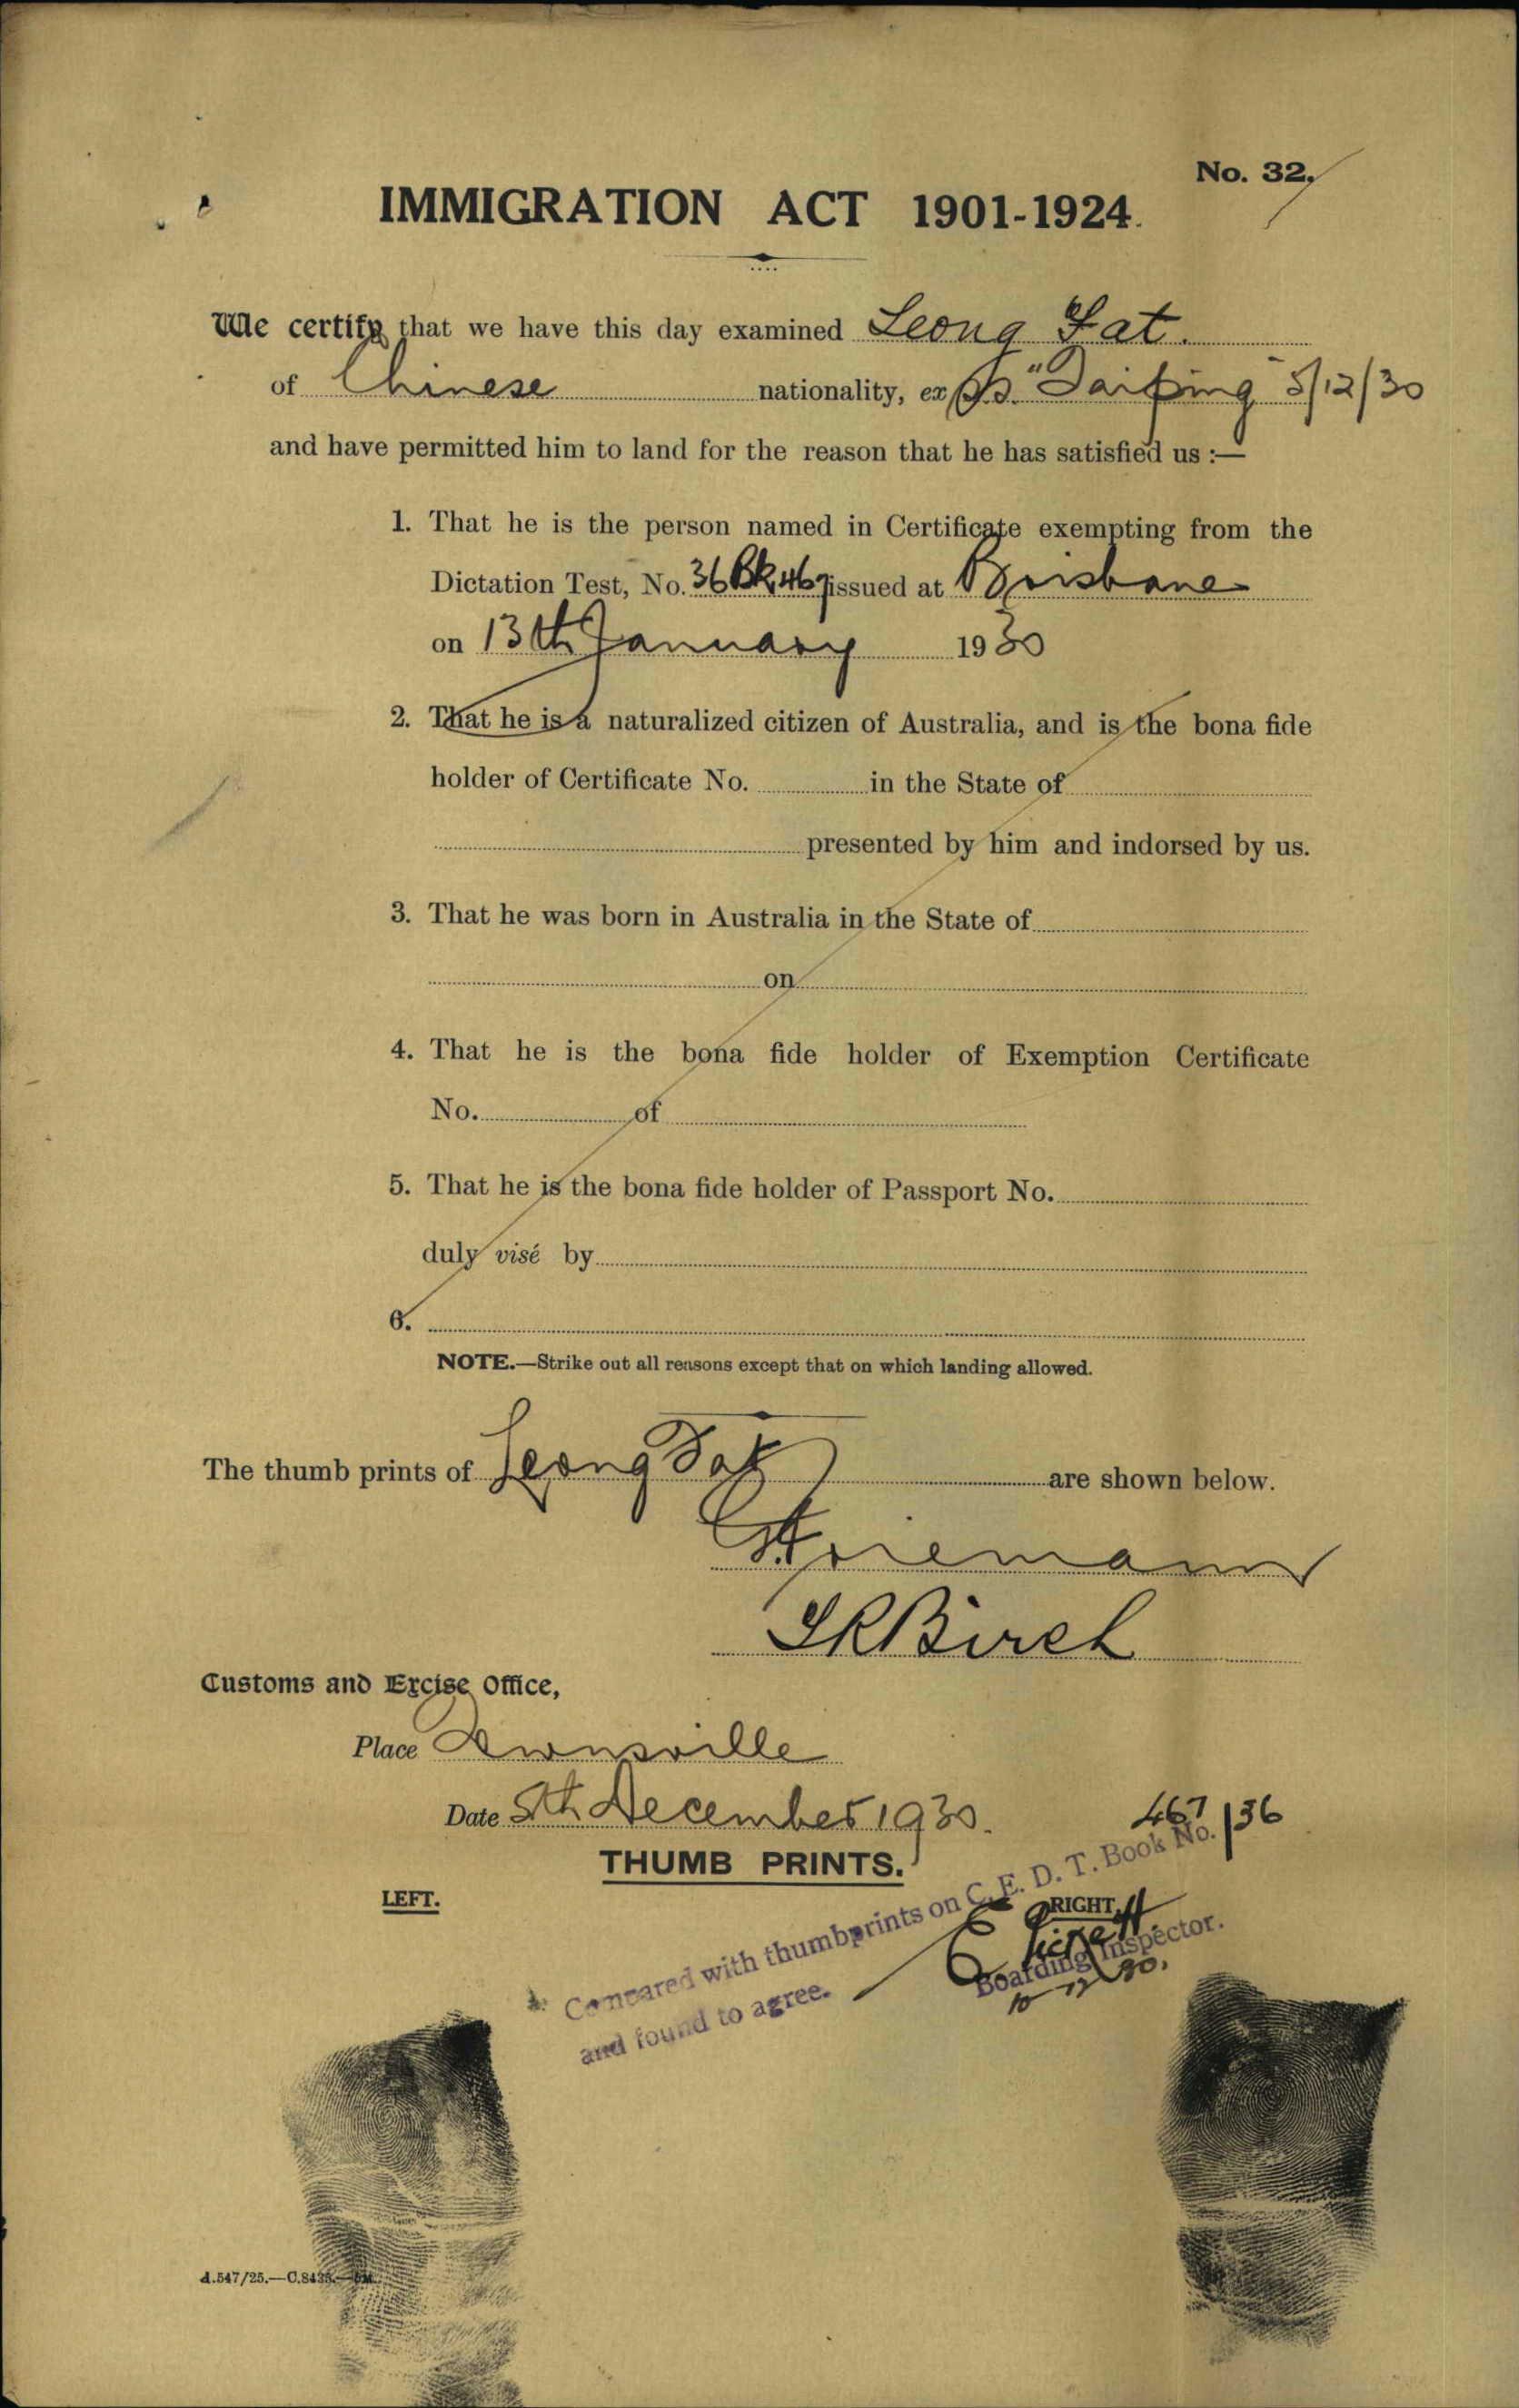 No. 32.
IMMIGRATION ACT 1901-1924.
We certify that we have this day examined Leong Fat.
of Chinese nationality, ex S.S. "Taiping" 5/12/30
and have permitted him to land for the reason that he has satisfied us :—
1. That he is the person named in Certificate exempting from the
Dictation Test, No. 36 Bk 467 issued at Brisbane
on 13th January 1930
2. That he is a naturalized citizen of Australia, and is the bona fide
holder of Certificate No. in the State of
presented by him and indorsed by us.
3. That he was born in Australia in the State of
on
4. That he is the bona fide holder of Exemption Certificate
No. of
5. That he is the bona fide holder of Passport No.
duly visé by
6.
NOTE.—Strike out all reasons except that on which landing allowed.
The thumb prints of Leong Fat are shown below.
Birch
Customs and Excise Office,
Place Townsville
Date 5th December 1930.
467/36
THUMB PRINTS.
LEFT.
RIGHT
Compared with thumbprints on C. E. D. T. Book No.
and found to agree.
Boarding Inspector.
10-12-30.
A.547/25.—C.8435.